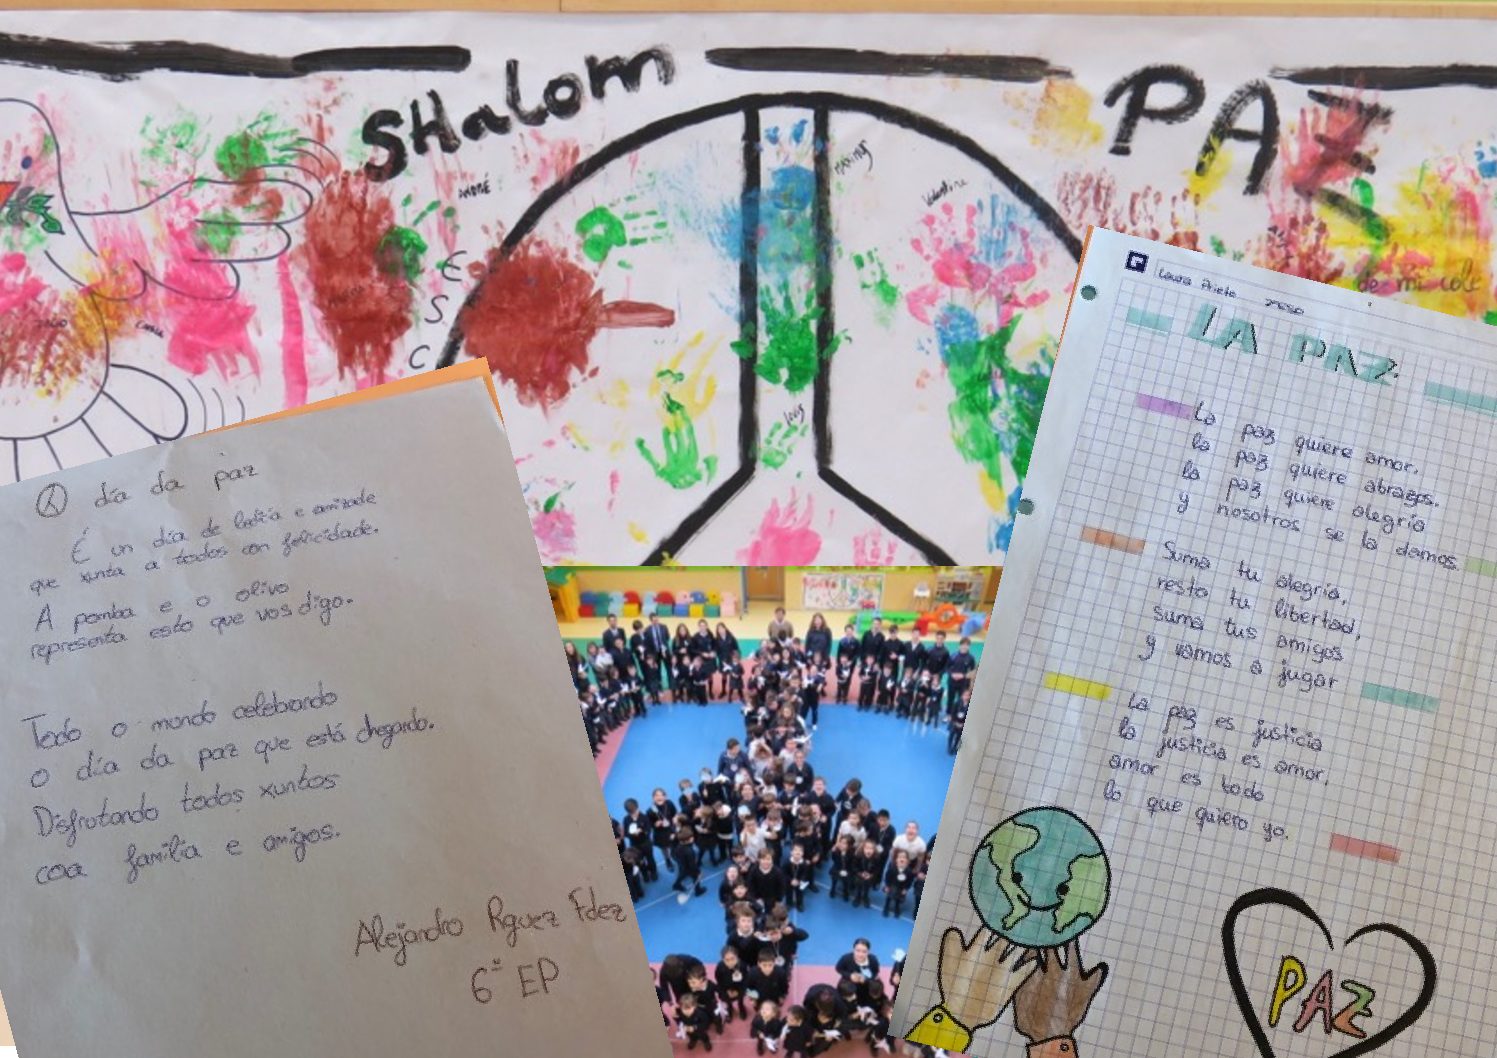 SHalom
PAZ
ANDRÉ
Valentina
de mi cole
E
S
C
IAGO
O día da paz
É un día de ledicia e amizade
que xunta a todos con felicidade.
A pomba e o olivo
representa esto que vos digo.
Todo o mundo celebrando
o día da paz que está chegando.
Disfrutando todos xuntos
coa familia e amigos.
Alejandro Rguez Fdez
6º EP
Laura Prieto 2ºESO
LA PAZ
La paz quiere amor,
la paz quiere abrazos.
la paz quiere alegría
y nosotros se la damos.
Suma tu alegría,
resta tu libertad,
suma tus amigos
y vamos a jugar
La paz es justicia
la justicia es amor,
amor es todo
lo que quiero yo.
PAZ